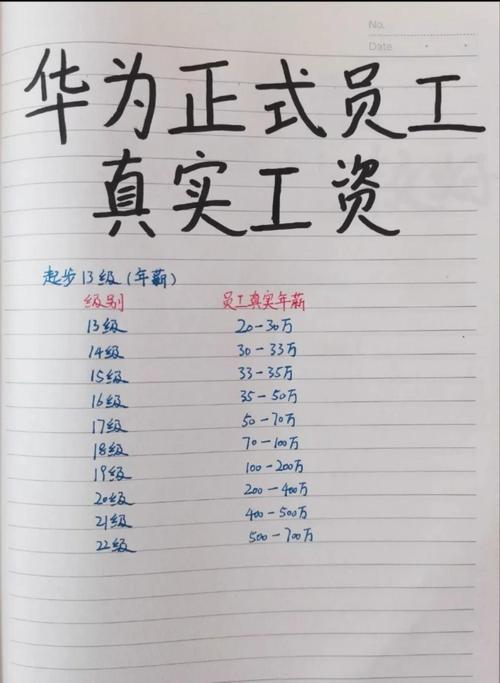 No.
Date
华为正式员工
真实工资
起步13级(年薪)
级别 员工真实年薪
13级 20-30万
14级 30-33万
15级 33-35万
16级 35-50万
17级 50-70万
18级 70-100万
19级 100-200万
20级 200-400万
21级 400-500万
22级 500-700万